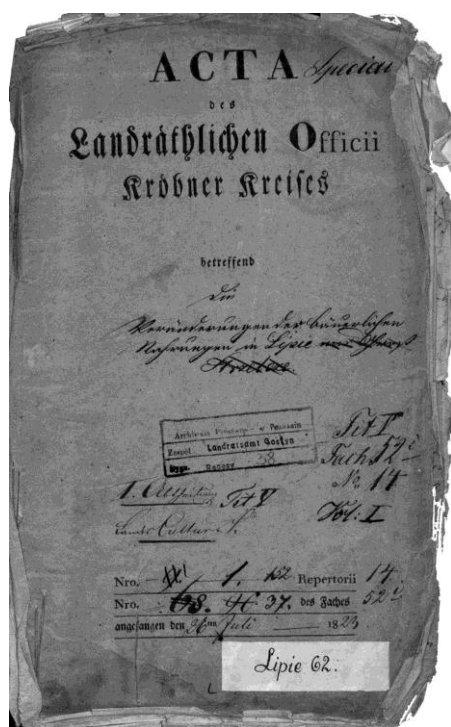 ACTA Specialia
des
Landräthlichen Officii
Kröbner Kreises
betreffend
die
Veränderungen der bäuerlichen
Nahrungen in Lipie
Archiwum Państwowe w Poznaniu
Zespół Landratsamt Gostyń
58
Tit V
Fach 52
No. 14
Vol: I
I. Abtheilung Tit V
Landes Cultur
Nro. 1. 152 Repertorii 14.
Nro. 37. des Faches 52
angefangen den 26ten Juli 1823
Lipie 62.